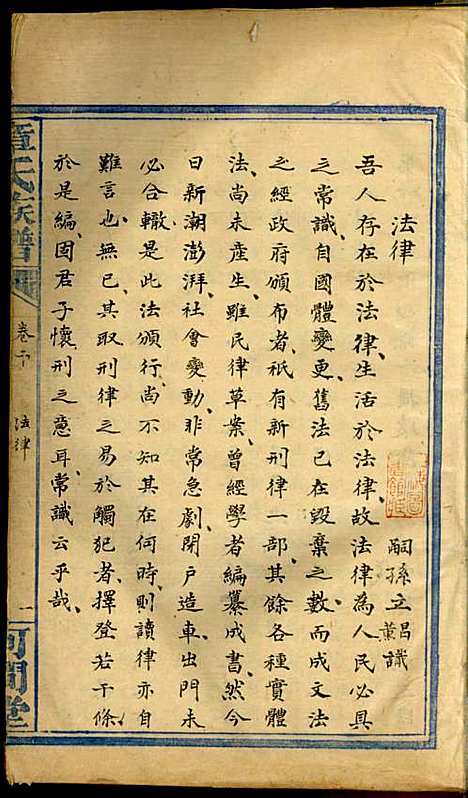 法律
嗣孫立昌薰識
吾人存在於法律、生活於法律、故法律為人民必具
之常識、自國體變更、舊法已在毀棄之數、而成文法
之經政府頒布者、祇有新刑律一部、其餘各種實體
法、尚未産生、雖民律草案、曾經學者編纂成書、然今
日新潮澎湃、社會變動、非常急劇、閉户造車、出門未
必合轍、是此法頒行、尚不知其在何時、則讀律亦自
難言也、無已、其取刑律之易於觸犯者、擇登若干條
於是編、固君子懷刑之意耳、常識云乎哉、
章氏族譜
卷
法律
一
河間堂